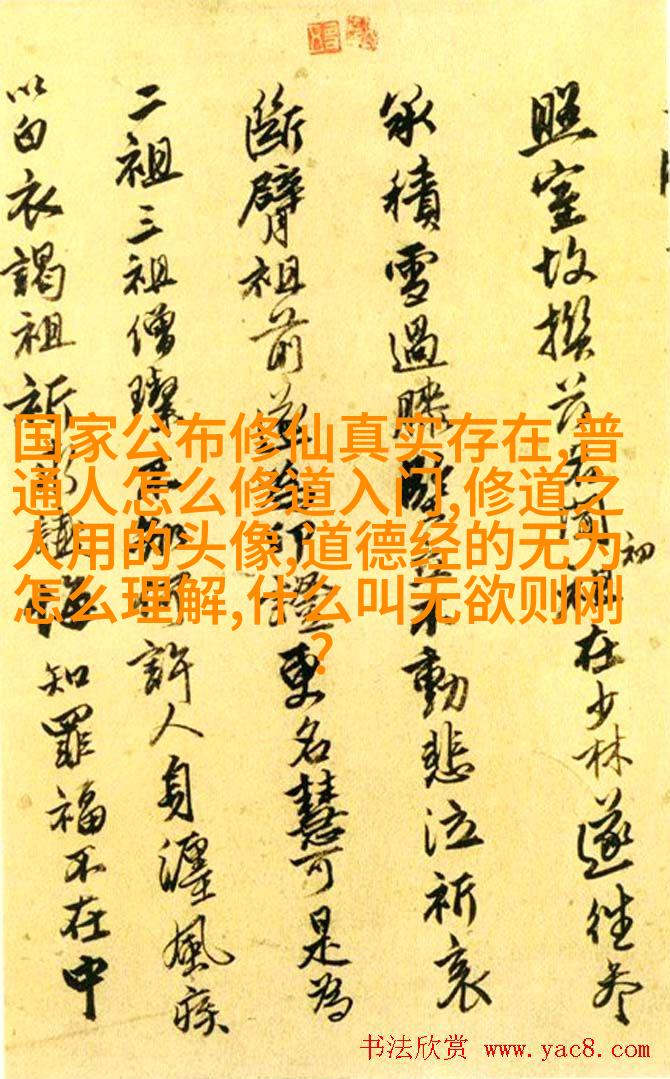 照室故撰聞初祖在少林遂往参
承積雪過膝堅立不動悲泣祈哀
斷臂祖前印證更名慧可是為
二祖三祖僧璨不知許人身纏風疾
以白衣謁祖祈知罪福不在中
国家公布修仙真实存在,普
通人怎么修道入门,修道之
人用的头像,道德经的无为
怎么理解,什么叫无欲则刚
?
书法欣赏 www.yac8.com